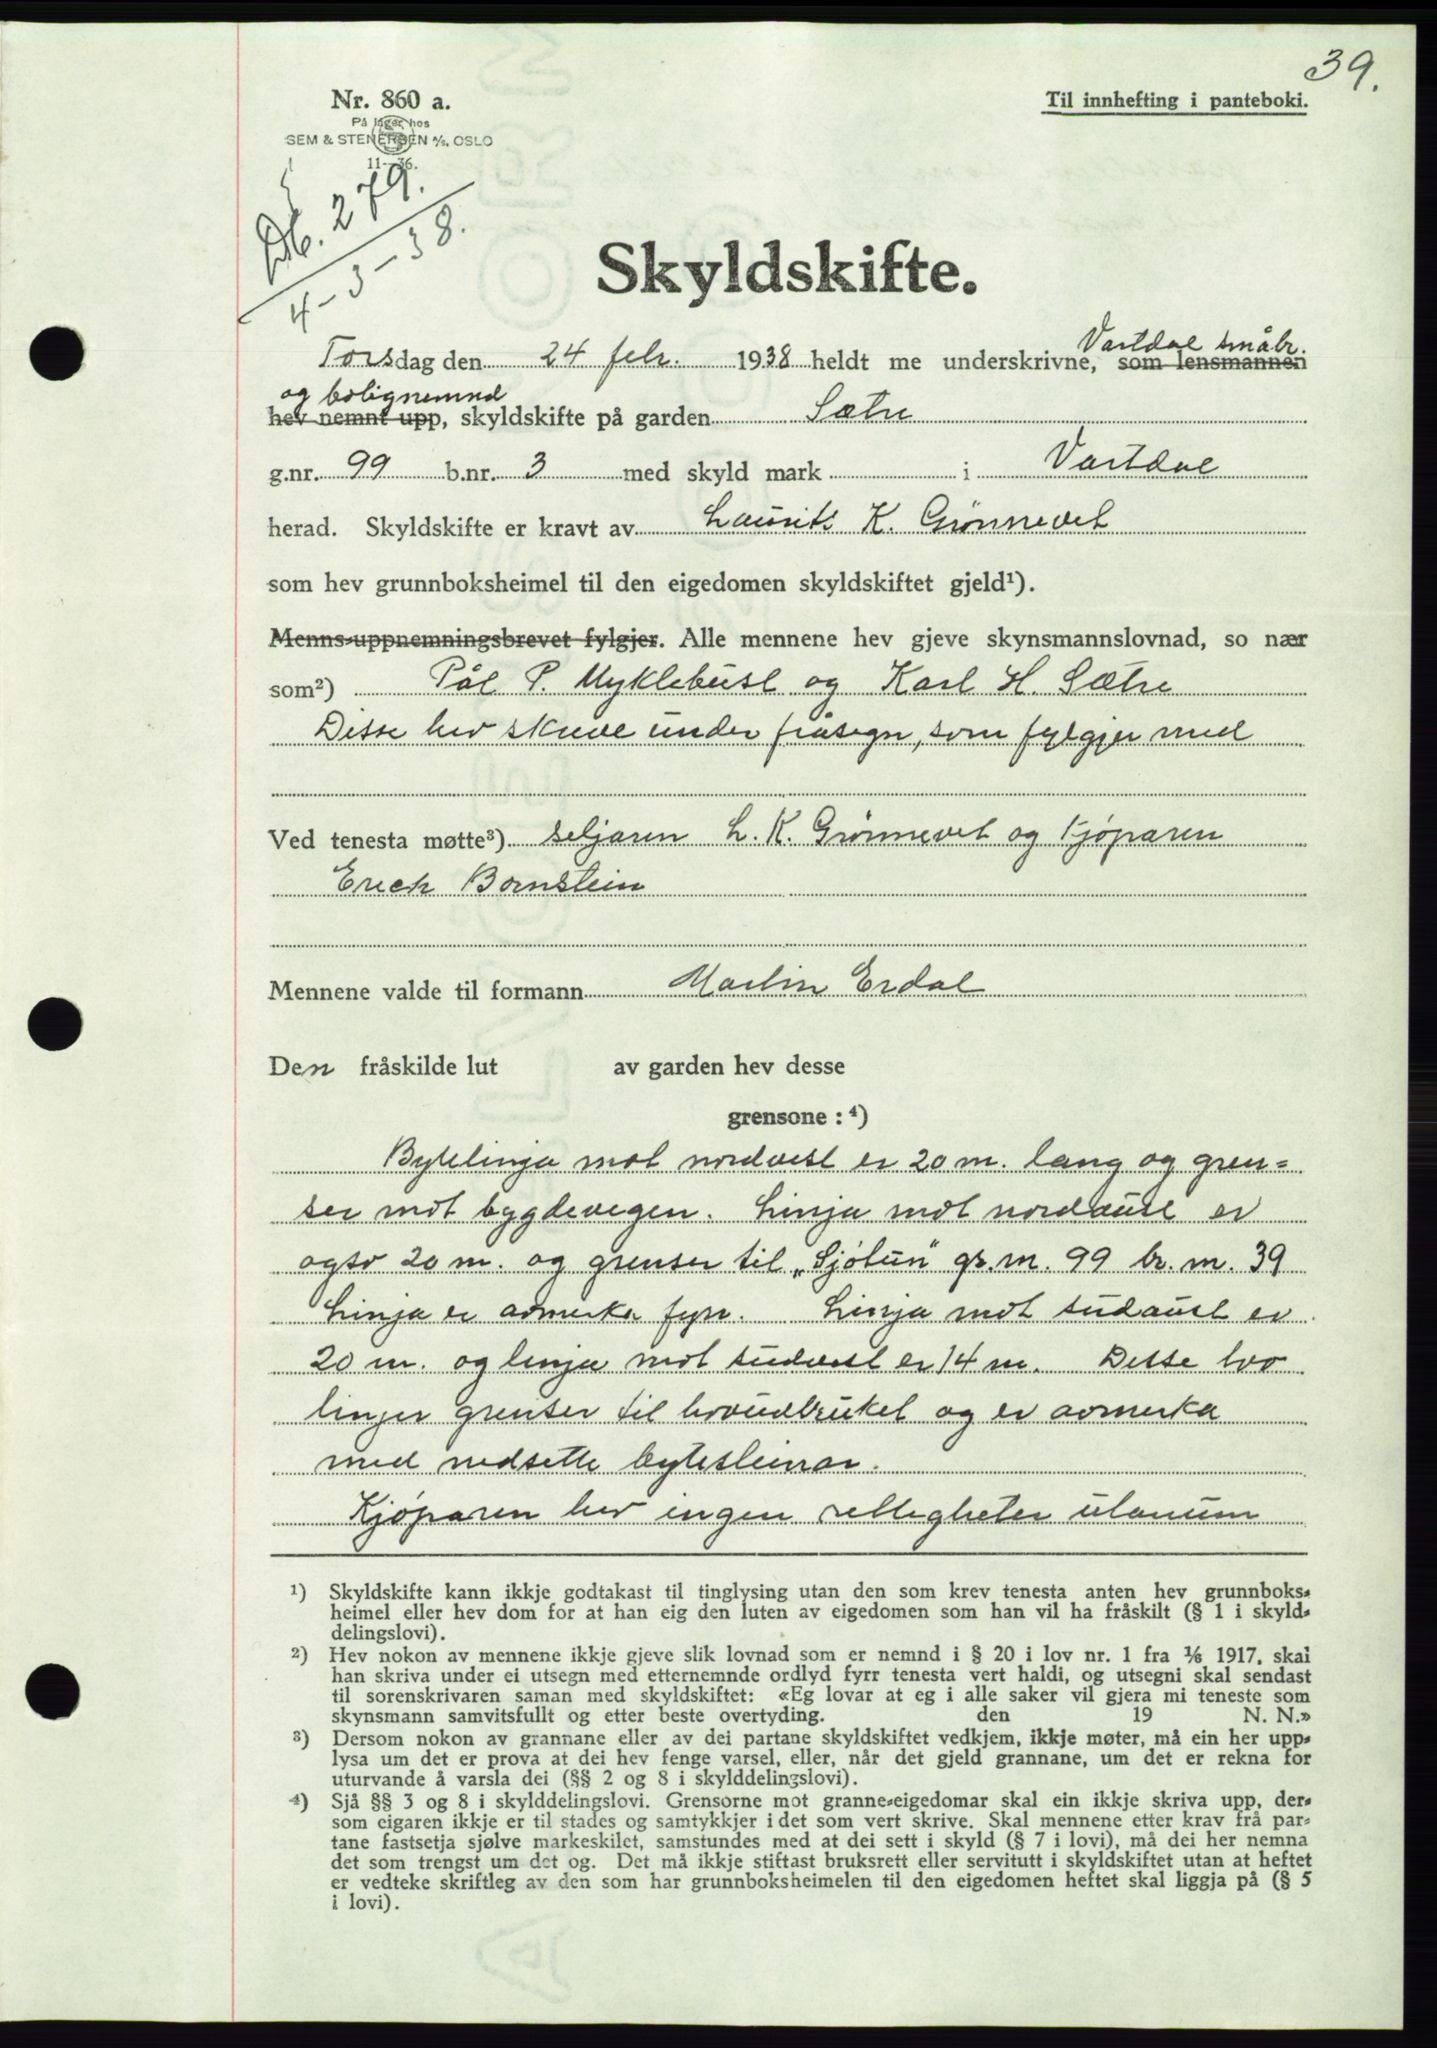 39.
Nr. 860 a.
På lager hos
SEM & STENERSEN A/S, OSLO
11—36.
Til innhefting i panteboki.
Db. 279.
4-3-38.
Skyldskifte.
Vartdal småbr.
Torsdag den 24 febr. 1938 heldt me underskrivne, som lensmannen
og bolignemnd
hev nemnt upp, skyldskifte på garden Sætre
g.nr. 99 b.nr. 3 med skyld mark i Vartdal
herad. Skyldskifte er kravt av Laurits K. Grønnevet
som hev grunnboksheimel til den eigedomen skyldskiftet gjeld¹).
Menns-uppnemningsbrevet fylgjer. Alle mennene hev gjeve skynsmannslovnad, so nær
som²) Pål P. Myklebust og Karl H. Sætre
Disse hev skreve under fråsegn, som fylgjer med
Ved tenesta møtte³) seljaren L. K. Grønnevet og kjøparen
Erich Bornstein
Mennene valde til formann Martin Erdal
Den fråskilde lut av garden hev desse
grensone : ⁴)
Bytelinja mot nordvest er 20 m. lang og gren=
ser mot bygdevegen. Linja mot nordaust er
ogso 20 m. og grenser til „Sjøtun" gr.nr. 99 br. nr. 39
Linja er avmerka fyrr. Linja mot sudaust er
20 m. og linja mot sudvest er 14 m. Desse tvo
linjer grenser til hovudbruket og er avmerka
med nedsette bytesteinar.
Kjøparen hev ingen rettigheter utanum
¹) Skyldskifte kann ikkje godtakast til tinglysing utan den som krev tenesta anten hev grunnboks-
heimel eller hev dom for at han eig den luten av eigedomen som han vil ha fråskilt (§ 1 i skyld-
delingslovi).
²) Hev nokon av mennene ikkje gjeve slik lovnad som er nemnd i § 20 i lov nr. 1 fra 1/6 1917, skal
han skriva under ei utsegn med etternemnde ordlyd fyrr tenesta vert haldi, og utsegni skal sendast
til sorenskrivaren saman med skyldskiftet: «Eg lovar at eg i alle saker vil gjera mi teneste som
skynsmann samvitsfullt og etter beste overtyding. den 19 N. N.»
³) Dersom nokon av grannane eller av dei partane skyldskiftet vedkjem, ikkje møter, må ein her upp-
lysa um det er prova at dei hev fenge varsel, eller, når det gjeld grannane, um det er rekna for
uturvande å varsla dei (§§ 2 og 8 i skylddelingslovi).
⁴) Sjå §§ 3 og 8 i skylddelingslovi. Grensorne mot granne-eigedomar skal ein ikkje skriva upp, der-
som eigaren ikkje er til stades og samtykkjer i det som vert skrive. Skal mennene etter krav frå par-
tane fastsetja sjølve markeskilet, samstundes med at dei sett i skyld (§ 7 i lovi), må dei her nemna
det som trengst um det og. Det må ikkje stiftast bruksrett eller servitutt i skyldskiftet utan at heftet
er vedteke skriftleg av den som har grunnboksheimelen til den eigedomen heftet skal liggja på (§ 5
i lovi).